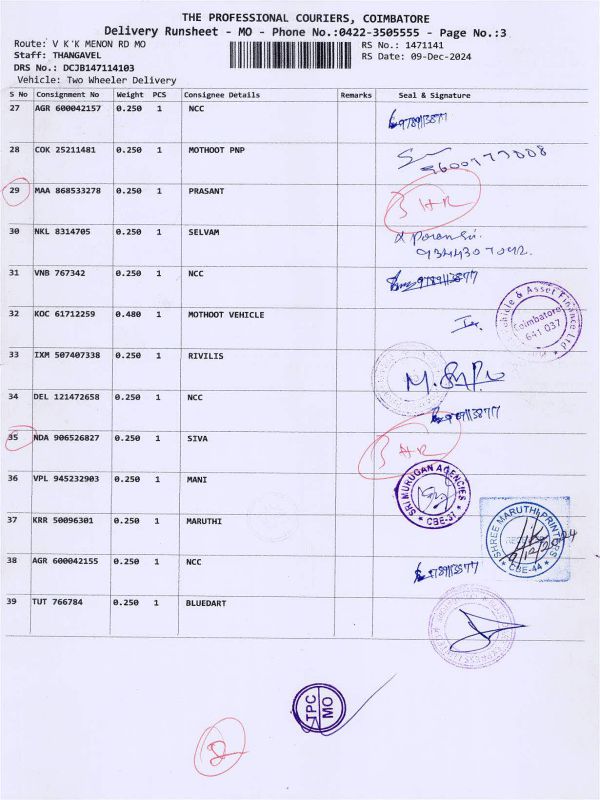 THE PROFESSIONAL COURIERS, COIMBATORE
Delivery Runsheet - MO - Phone No.:0422-3505555 - Page No.:3
Route: V K K MENON RD MO
RS No.: 1471141
Staff: THANGAVEL
RS Date: 09-Dec-2024
DRS No.: DCJB147114103
Vehicle: Two Wheeler Delivery
S No Consignment No Weight PCS Consignee Details Remarks Seal & Signature
27 AGR 600042157 0.250 1 NCC
28 COK 25211481 0.250 1 MOTHOOT PNP
29 MAA 868533278 0.250 1 PRASANT
30 NKL 8314705 0.250 1 SELVAM
31 VNB 767342 0.250 1 NCC
32 KOC 61712259 0.480 1 MOTHOOT VEHICLE
Vehicle & Asset Finance Ltd
Coimbatore
641 037
33 IXM 507407338 0.250 1 RIVILIS
34 DEL 121472658 0.250 1 NCC
35 NDA 906526827 0.250 1 SIVA
36 VPL 945232903 0.250 1 MANI
SRI MURUGAN AGENCIES
* CBE-37 *
37 KRR 50096301 0.250 1 MARUTHI
SHREE MARUTHI PRINTERS
* CBE-44 *
38 AGR 600042155 0.250 1 NCC
39 TUT 766784 0.250 1 BLUEDART
TPC
MO
2